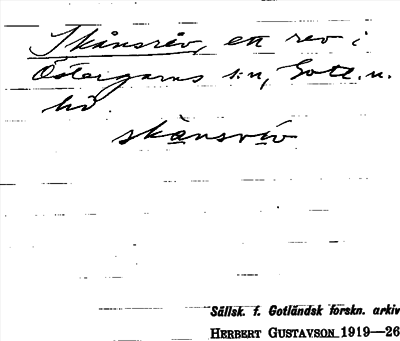 Skånsrev, ett rev i
Östergarns s:n, Gotl. n.
hd
skånsrèv
Sällsk. f. Gotländsk forskn. arkiv
HERBERT GUSTAVSON 1919—26